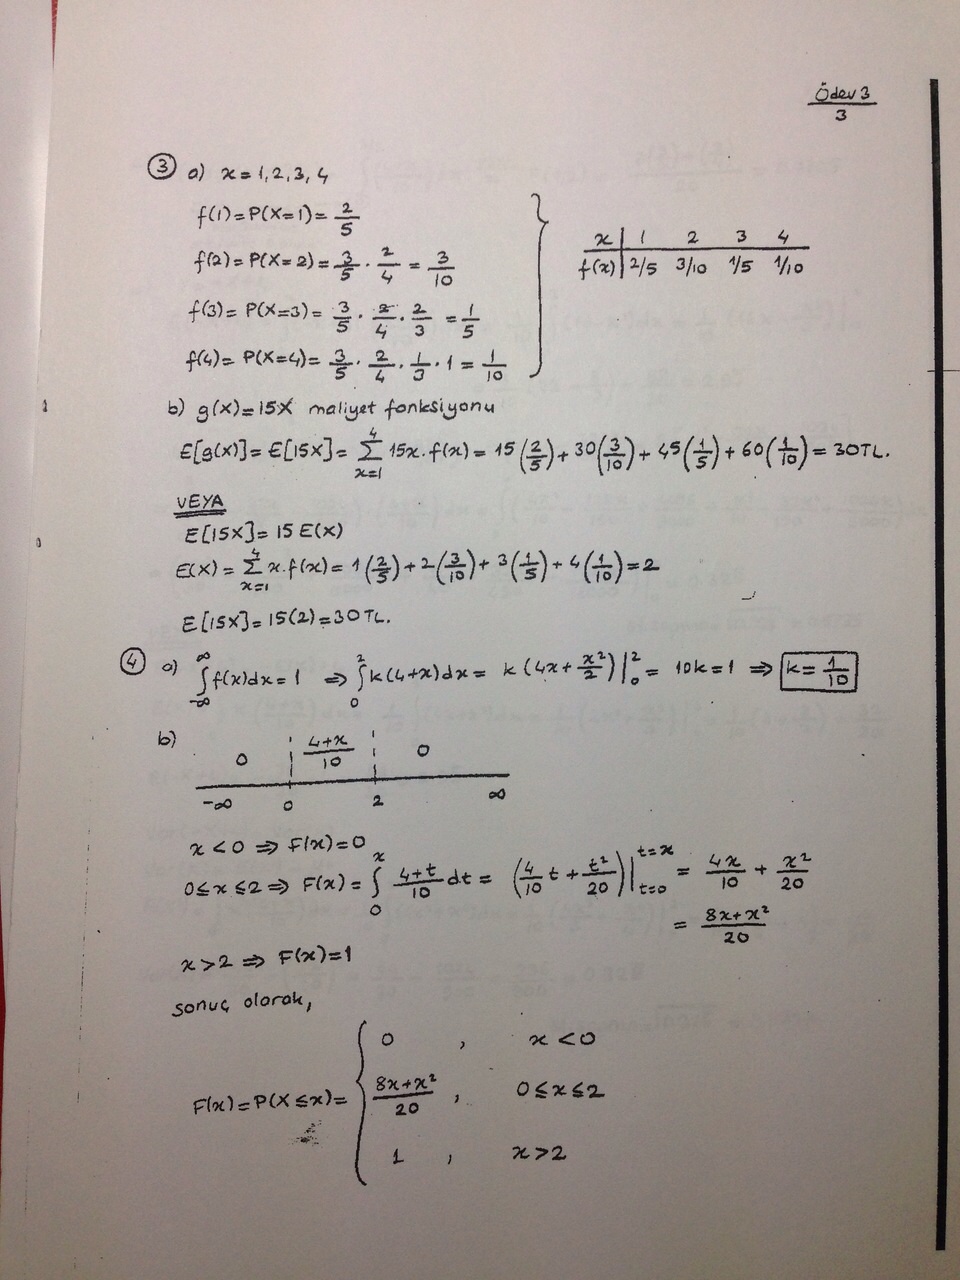 Ödev 3
3
③ a) x=1,2,3,4
f(1)=P(X=1)= 2/5
f(2)=P(X=2)= 3/5 · 2/4 = 3/10
f(3)=P(X=3)= 3/5 · 2/4 · 2/3 = 1/5
f(4)=P(X=4)= 3/5 · 2/4 · 1/3 · 1 = 1/10
x | 1 2 3 4
f(x) | 2/5 3/10 1/5 1/10
b) g(x)=15X maliyet fonksiyonu
E[g(x)]=E[15X]= ∑_{x=1}^{4} 15x.f(x)= 15(2/5)+30(3/10)+45(1/5)+60(1/10)=30TL.
VEYA
E[15X]=15 E(X)
E(X)= ∑_{x=1}^{4} x.f(x)= 1(2/5)+2(3/10)+3(1/5)+4(1/10)=2
E[15X]=15(2)=30TL.
④ a) ∫_{-∞}^{∞} f(x)dx=1 ⇒ ∫_{0}^{2} k(4+x)dx= k(4x+x²/2)|_{0}^{2} = 10k=1 ⇒ k=1/10
b) 0 (4+x)/10 0
-∞ 0 2 ∞
x<0 ⇒ F(x)=0
0≤x≤2 ⇒ F(x)= ∫_{0}^{x} (4+t)/10 dt = (4/10 t + t²/20)|_{t=0}^{t=x} = 4x/10 + x²/20
= (8x+x²)/20
x>2 ⇒ F(x)=1
sonuç olarak,
0 , x<0
F(x)=P(X≤x)= { (8x+x²)/20 , 0≤x≤2
1 , x>2